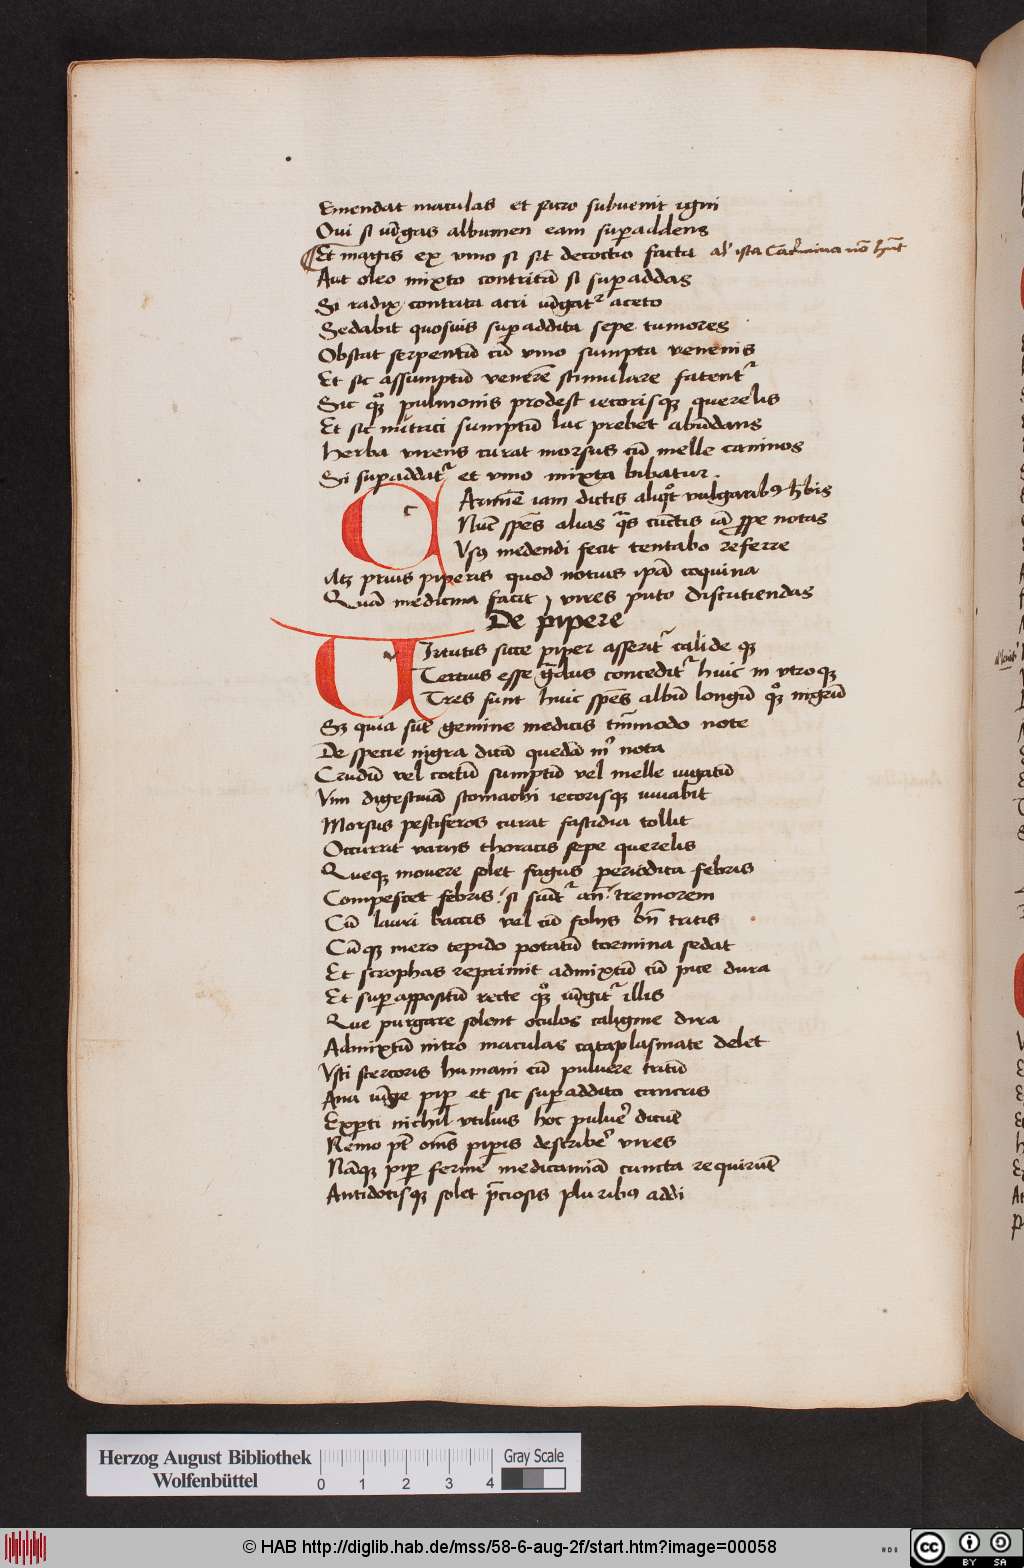 Emendat maculas et sacro subuenit igni
Oui si iūgas albumen eam suꝑaddens
Et magis ex vino si sit decoctio facta al' ista Carmina nō hn̄t
Aut oleo mixto contritā si suꝑaddas
Si radix contrita acri iūgat᷑ aceto
Sedabit quosuis suꝑaddita sepe tumores
Obstat serpentū cū vino sumpta venenis
Et sic assumptū venerē stimulare fatent᷑
Sic qͦꝫ pulmonis prodest iecorisqꝫ querelis
Et sic nutrici sumptū lac prebet abūdans
Herba virens curat morsus cū melle caninos
Si suꝑaddat᷑ et vino mixta bibatur
CArmīe iam dictis aliqͦt vulgaribꝰ h̄bis
Nūc sp̄es alias qͣs cūctis iā ꝓpe notas
Vsꝰ medendi fecit tentabo referre
Atꝫ prius piperis quod notius ipā coquina
Quā medicina facit vires puto discutiendas
De pipere
VIrtutis sicce piper asserit᷑ calide qꝫ
Tercius esse gͣdus concedit᷑ huic in vtroqꝫ
Tres sunt huic sp̄es albū longū qͦꝫ nigrū
Sꝫ quia sūt gemine medicis tm̄modo note
De specie nigra dicā quedā mͥ nota
Crudū vel coctū sumptū vel melle iugatū
Vim digestiuā stomachi iecorisqꝫ iuuabit
Morsus pestiferos curat fastidia tollit
Occurrit varijs thoracis sepe querelis
Queqꝫ mouere solet fagus periodica febris
Compescet febris si sūit᷑ an̄ tremorem
Cū lauri baccis vel cū folijs bn̄ tritis
Cūqꝫ mero tepido potatū tormina sedat
Et scrophas reprimit admixtū cū pice dura
Et suꝑappositū recte qͦꝫ iūgit᷑ illis
Que purgare solent oculos caligine dira
Admixtū nitro maculas cataplasmate delet
Vsti stercoris humani cū puluere tritū
Ana iūge piꝑ et sic suꝑaddito cancris
Exꝑti nichil vtilius hoc puluer̓ dicūt
Nemo pt̄ om̄s piꝑis describer̓ vires
Nāqꝫ piꝑ ferme medicamīa cuncta requirūt
Antidotisqꝫ solet p̄ciosis pluribꝰ addi
Herzog August Bibliothek
Wolfenbüttel
0 1 2 3 4
Gray Scale
© HAB http://diglib.hab.de/mss/58-6-aug-2f/start.htm?image=00058
HAB
cc BY SA